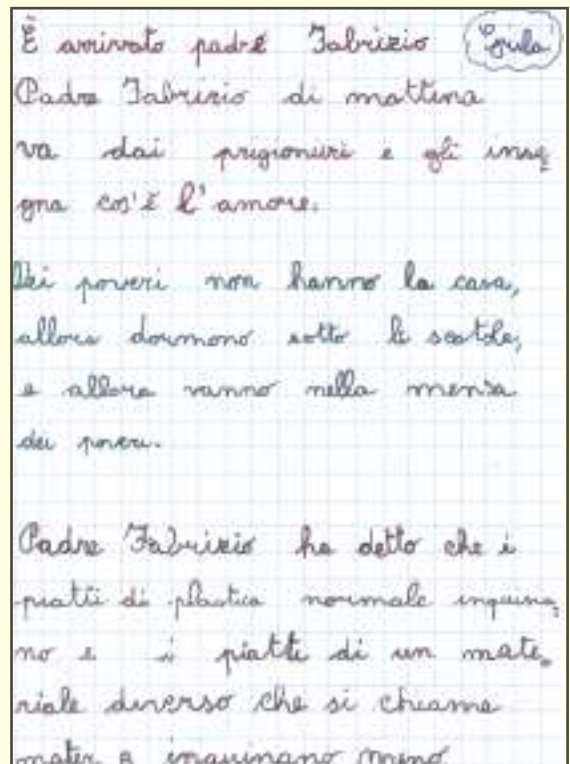 È arrivato padre Fabrizio
Padre Fabrizio di mattina
va dai prigionieri e gli inse
gna cos'è l'amore.
Dei poveri non hanno la casa,
allora dormono sotto le scatole,
e allora vanno nella mensa
dei poveri.
Padre Fabrizio ha detto che i
piatti di plastica normale inquina
no e i piatti di un mate
riale diverso che si chiama
mater B inquinano meno